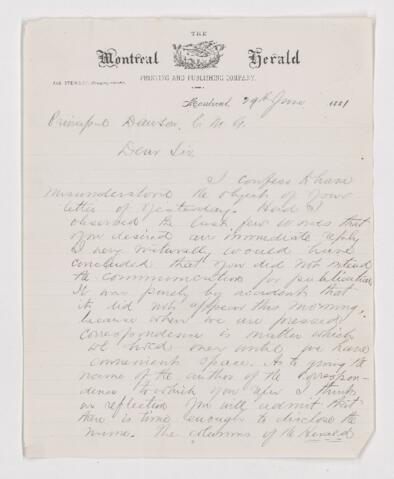 THE
Montreal Herald
PRINTING AND PUBLISHING COMPANY.
JAS. STEWART,
Montreal 29th June 1881
Principal Dawson, C. M. G.
Dear Sir
I confess to have
misunderstood the object of your
letter of yesterday. Had I
observed the last few words that
you desire an immediate reply
I very naturally would have
concluded that you did not intend
the communication for publication
It was purely by accident that
it did not appear this morning,
because when we are pressed
correspondence is matter which
we hold over until we have
convenient space. As to giving the
name of the author of the correspon-
dence to which you refer I think
on reflection you will admit that
there is time enough to disclose the
name. The columns of the Herald